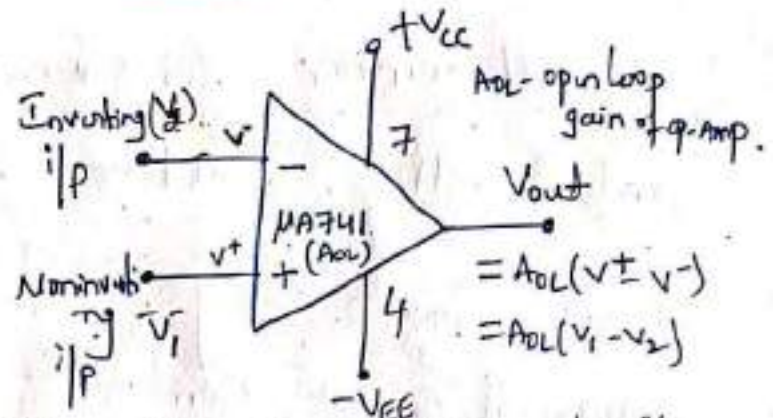 +Vcc
AOL - open loop
gain of op-Amp.
Inverting (V2)
i/p
V-
-
7
Vout
μA741
(AOL)
V+
+
Noninverti
ng V1
i/p
4
= AOL(V+ - V-)
= AOL(V1 - V2)
-VEE